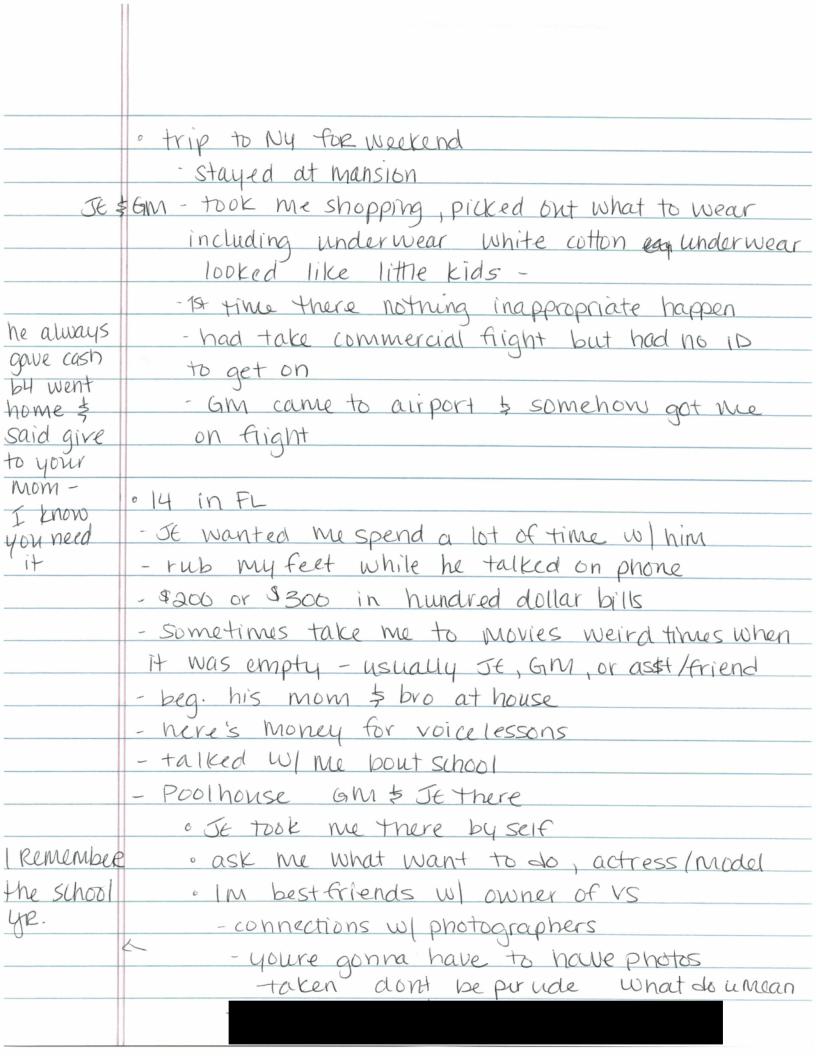 • trip to NY for weekend
- stayed at mansion
JE & GM - took me shopping, picked out what to wear
including underwear white cotton underwear
looked like little kids -
- 1st time there nothing inappropriate happen
- had take commercial flight but had no ID
to get on
- GM came to airport & somehow got me
on flight
he always
gave cash
b4 went
home &
said give
to your
mom -
I know
you need
it
• 14 in FL
- JE wanted me spend a lot of time w/ him
- rub my feet while he talked on phone
- $200 or $300 in hundred dollar bills
- sometimes take me to movies weird times when
it was empty - usually JE, GM, or asst/friend
- beg. his mom & bro at house
- here's money for voice lessons
- talked w/ me bout school
- Poolhouse GM & JE there
• JE took me there by self
• ask me what want to do, actress/model
• Im best friends w/ owner of VS
- connections w/ photographers
- youre gonna have to have photos
taken dont be prude what do u mean
I remember
the school
yr.
←